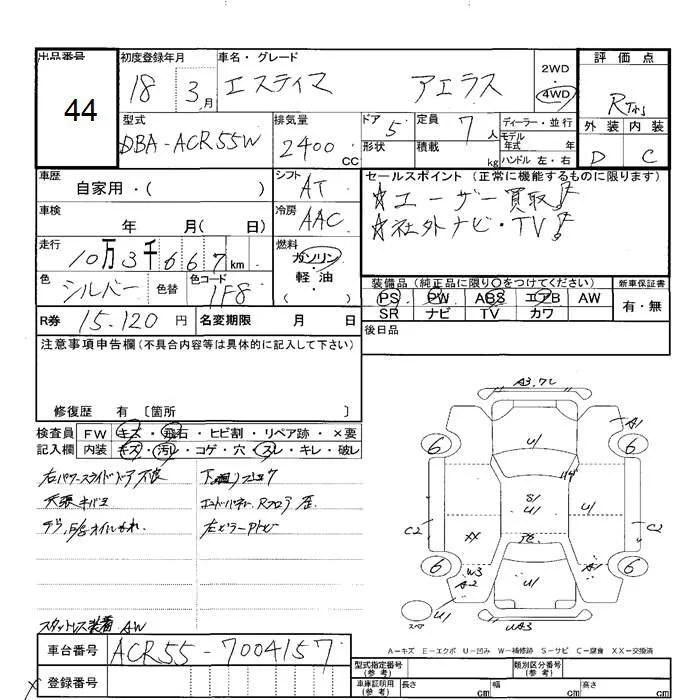 出品番号 初度登録年月 車名・グレード 2WD 評価点
44 18 3月 エスティマ アエラス 4WD
型式 排気量 ドア 5 定員 7人 ディーラー・並行 外装 内装
DBA-ACR55W 2400CC 形状 積載 kg モデル年式 年 D C
ハンドル 左・右
車歴 シフト セールスポイント(正常に機能するものに限ります)
自家用・( ) AT ☆ユーザー買取!
車検 冷房 ☆社外ナビ・TV!
年 月( 日) AAC
走行 燃料
10万3千667km ガソリン・軽油
色 シルバー 色替 色コード 1F8 装備品(純正品に限り○をつけてください) 新車保証書
PS PW ABS エアB AW 有・無
R券 15.120円 名変期限 月 日 SR ナビ TV カワ
注意事項申告欄(不具合内容等は具体的に記入して下さい) 後日品
修復歴 有〔箇所 〕
検査員 FW キズ・飛石・ヒビ割・リペア跡・×要
記入欄 内装 キズ・汚レ・コゲ・穴・スレ・キレ・破レ
右パワースライドドア不良
A3,フレ
U1
A1
6 6
S1
U1
U1
C2 C2
XX
W3
A2
A1
U1
6 6
スペア
U1
UA3
スタットレス装着 AW
A=キズ E=エクボ U=凹み W=補修跡 S=サビ C=腐食 XX=交換済
車台番号 ACR55-7004157
登録番号
型式指定番号(参考) 類別区分番号(参考)
車庫証明用(参考) 長さ cm 幅 cm 高さ cm